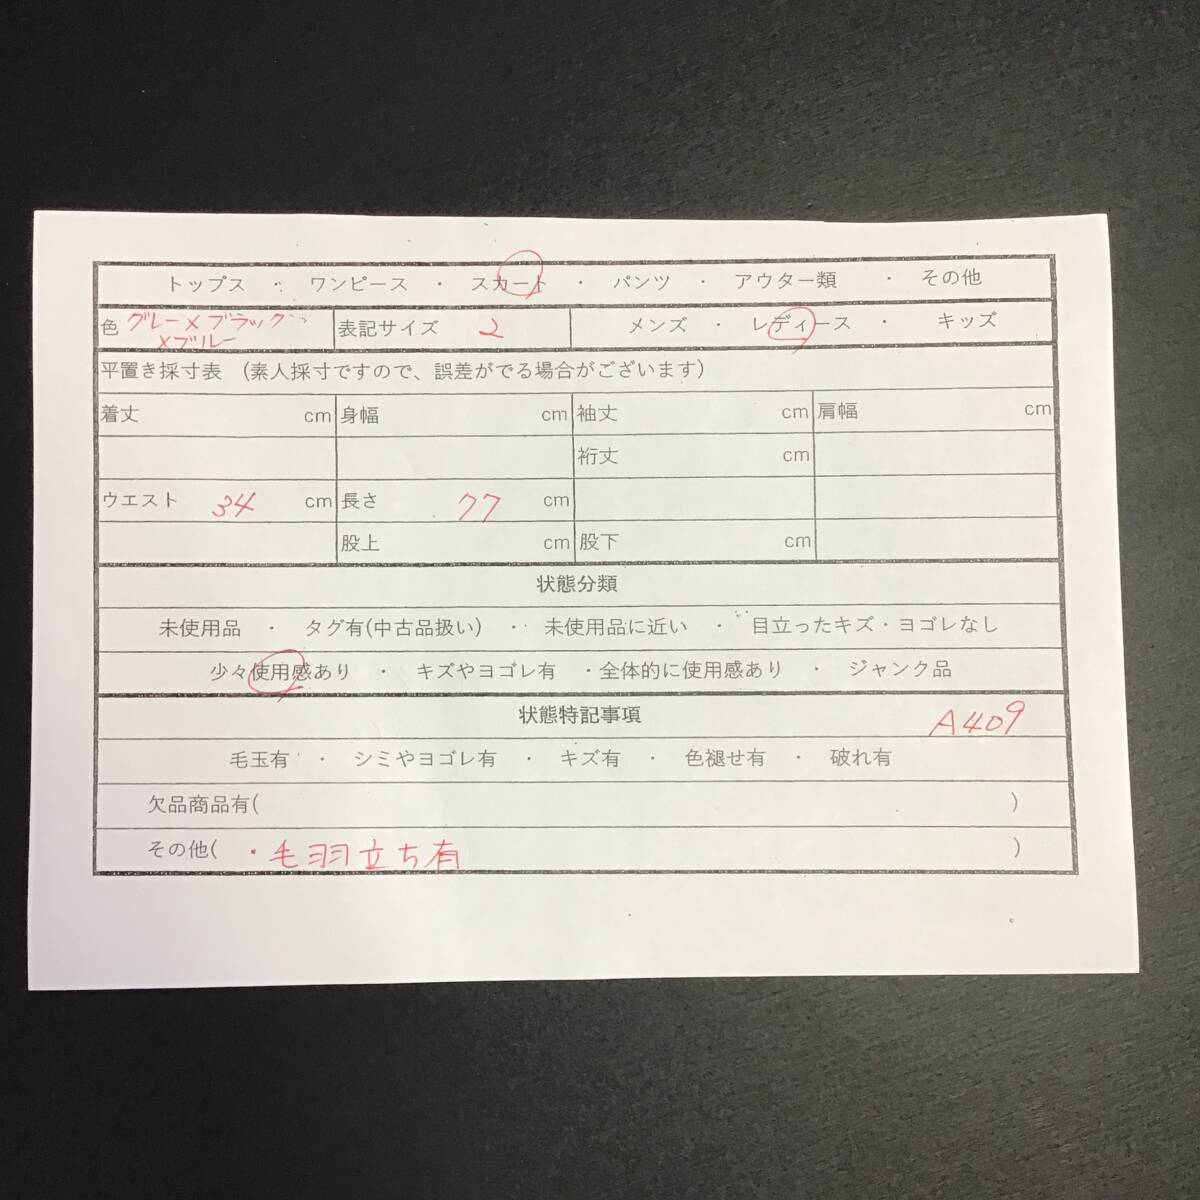 トップス ・ ワンピース ・ スカート ・ パンツ ・ アウター類 ・ その他
色 グレー×ブラック 表記サイズ 2 メンズ ・ レディース ・ キッズ
×ブルー
平置き採寸表 (素人採寸ですので、誤差がでる場合がございます)
着丈 cm 身幅 cm 袖丈 cm 肩幅 cm
裄丈 cm
ウエスト 34 cm 長さ 77 cm
股上 cm 股下 cm
状態分類
未使用品 ・ タグ有(中古品扱い) ・ 未使用品に近い ・ 目立ったキズ・ヨゴレなし
少々使用感あり ・ キズやヨゴレ有 ・全体的に使用感あり ・ ジャンク品
状態特記事項 A409
毛玉有 ・ シミやヨゴレ有 ・ キズ有 ・ 色褪せ有 ・ 破れ有
欠品商品有( )
その他( ・毛羽立ち有 )